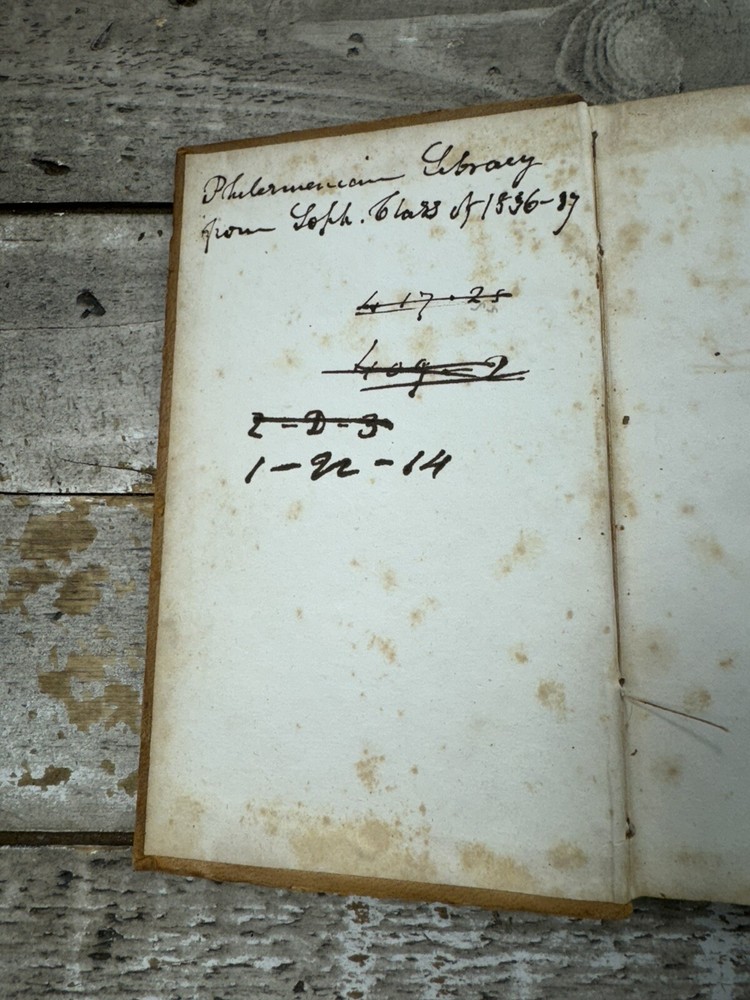 Philermenian Library
from Soph. Class of 1836-37
417.25
409-2
2-D-3
1-22-14